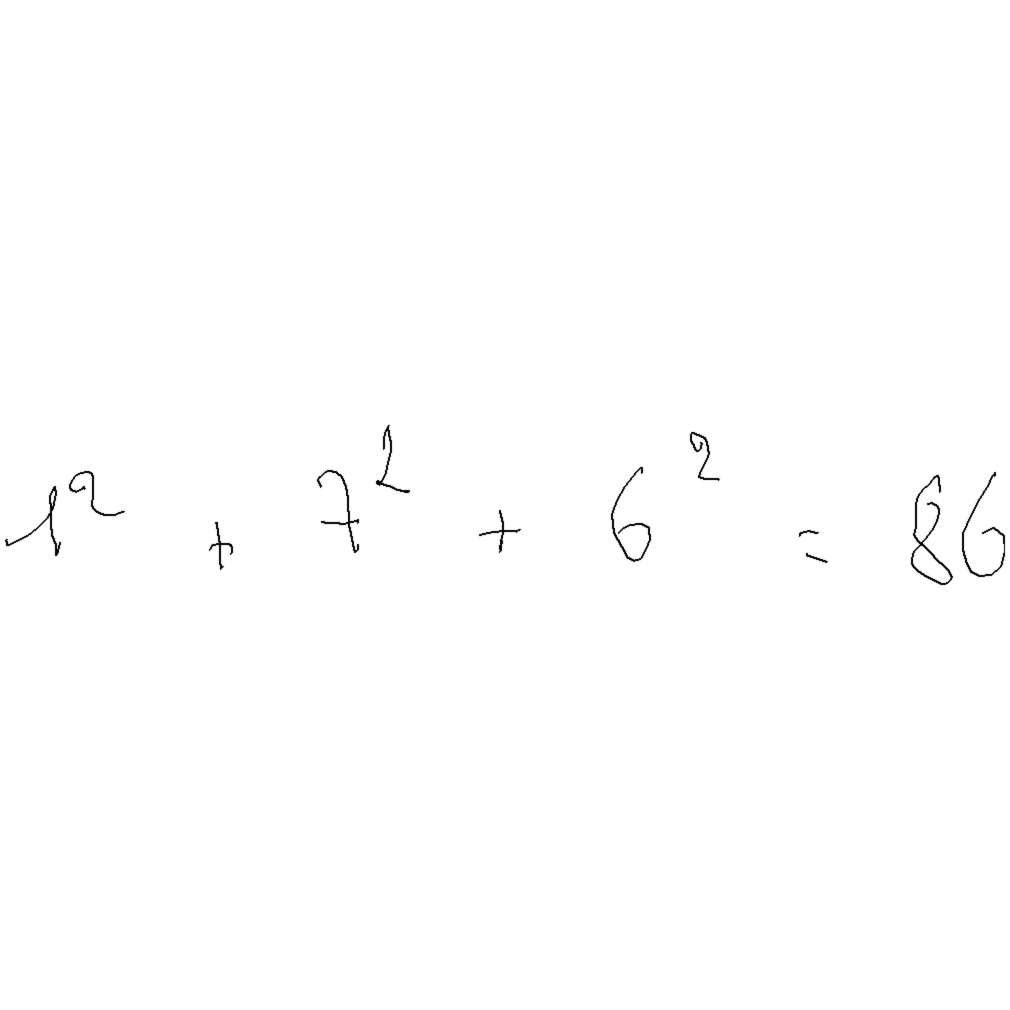 1² + 7² + 6² = 86